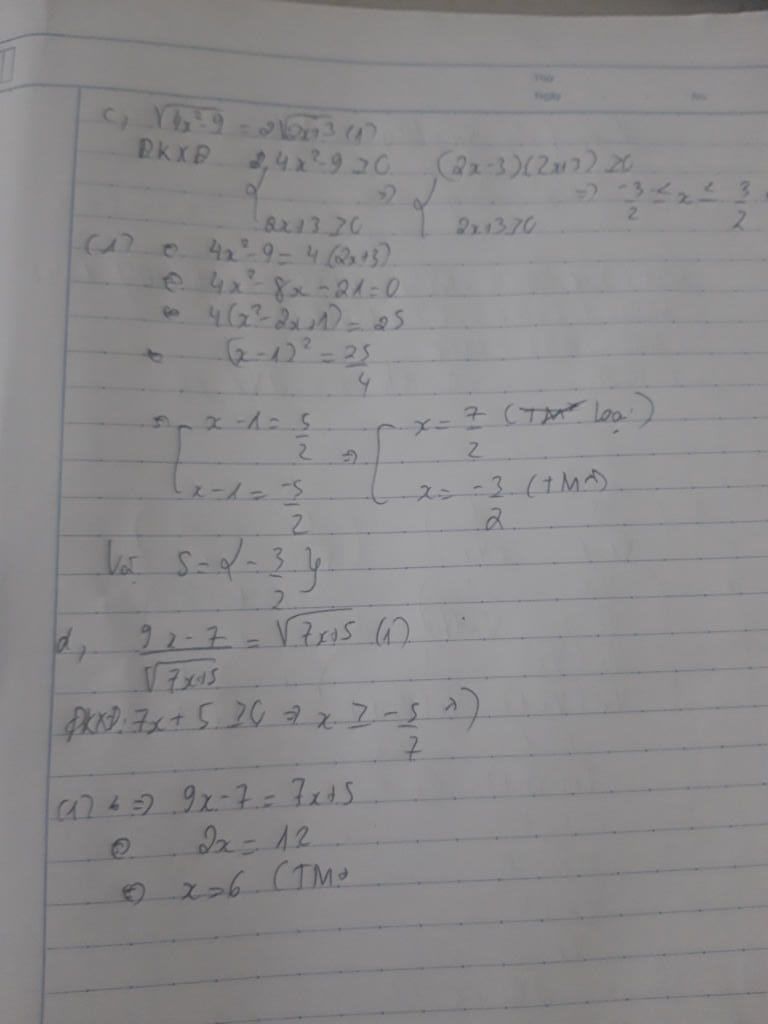 Thứ
Ngày No.
c, √4x²-9 = 2√2x+3 (1)
ĐKXĐ { 4x²-9 ≥0 => { (2x-3)(2x+3) ≥0 => -3/2 ≤ x ≤ 3/2
2x+3 ≥0 2x+3≥0
(1) <=> 4x²-9 = 4(2x+3)
<=> 4x²-8x-21=0
<=> 4(x²-2x+1) = 25
<=> (x-1)² = 25/4
=> [ x-1 = 5/2 => [ x = 7/2 (loại)
x-1 = -5/2 x = -3/2 (TM)
Vậy S={-3/2}
d, 9x-7/√7x+5 = √7x+5 (1)
ĐKXĐ: 7x+5 ≥0 => x ≥ -5/7
(1) <=> 9x-7 = 7x+5
<=> 2x = 12
<=> x=6 (TM)